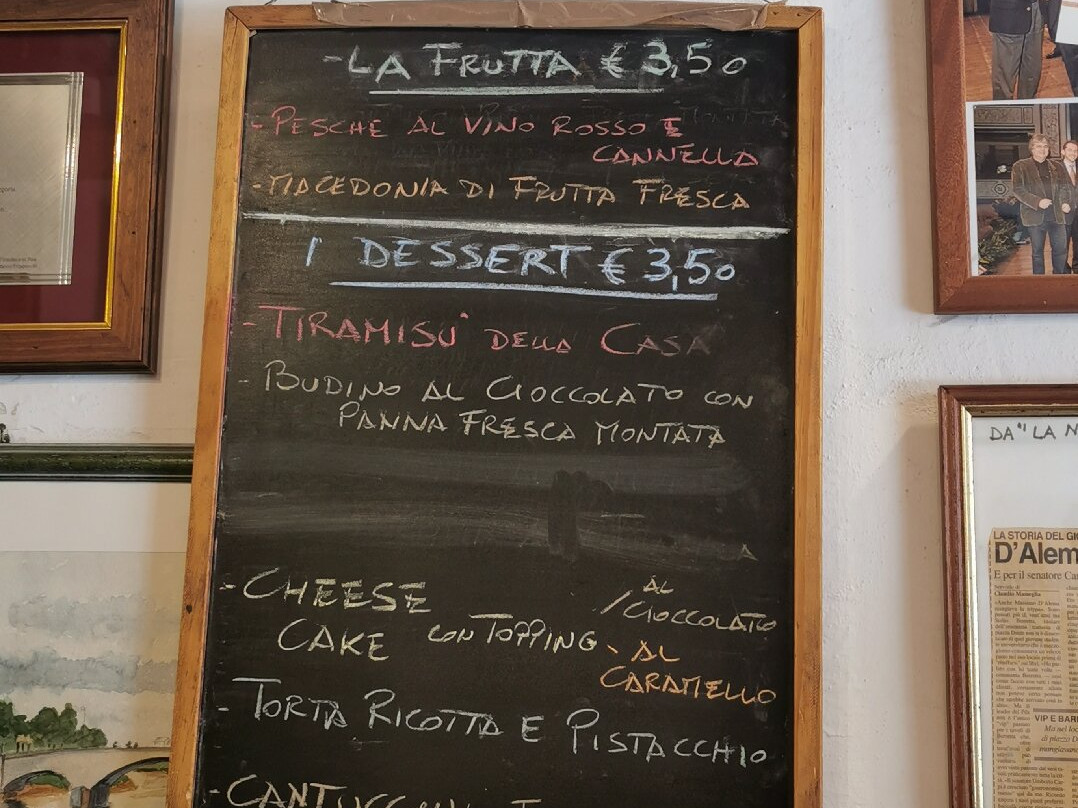 - LA FRUTTA € 3,50
- PESCHE AL VINO ROSSO E
CANNELLA
- MACEDONIA DI FRUTTA FRESCA
I DESSERT € 3,50
- TIRAMISU' DELLA CASA
- BUDINO AL CIOCCOLATO CON
PANNA FRESCA MONTATA
- CHEESE
CAKE CON TOPPING
AL
CIOCCOLATO
AL
CARAMELLO
- TORTA RICOTTA E PISTACCHIO
DA "LA N
LA STORIA DEL GI
D'Alem
E per il senatore Ca
VIP E BAR
Ma nel loc
di piazza D
mangiavan